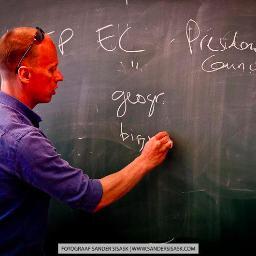 P EC - Presiden
Counci
"
geogr.
FOTOGRAAF SANDER SISASK | WWW.SANDERSISASK.COM